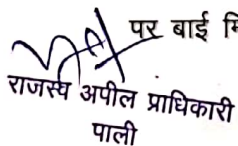 पर बाई मि
राजस्व अपील प्राधिकारी
पाली